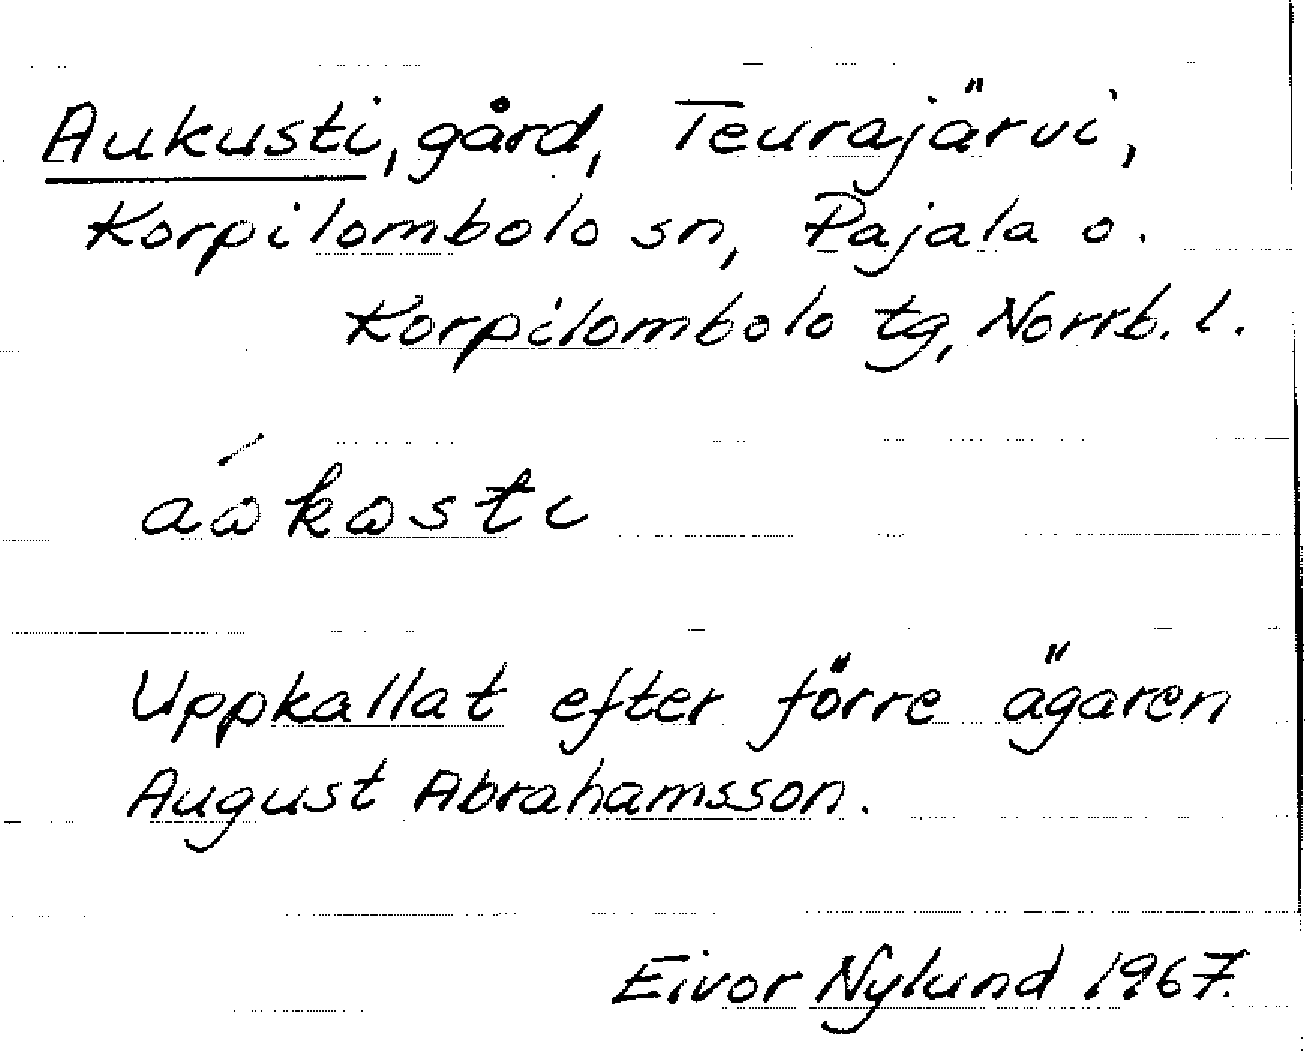 Aukusti, gård, Teurajärvi,
Korpilombolo sn, Pajala o.
Korpilombolo tg, Norrb. l.
aώkωsti
Uppkallat efter förre ägaren
August Abrahamsson.
Eivor Nylund 1967.